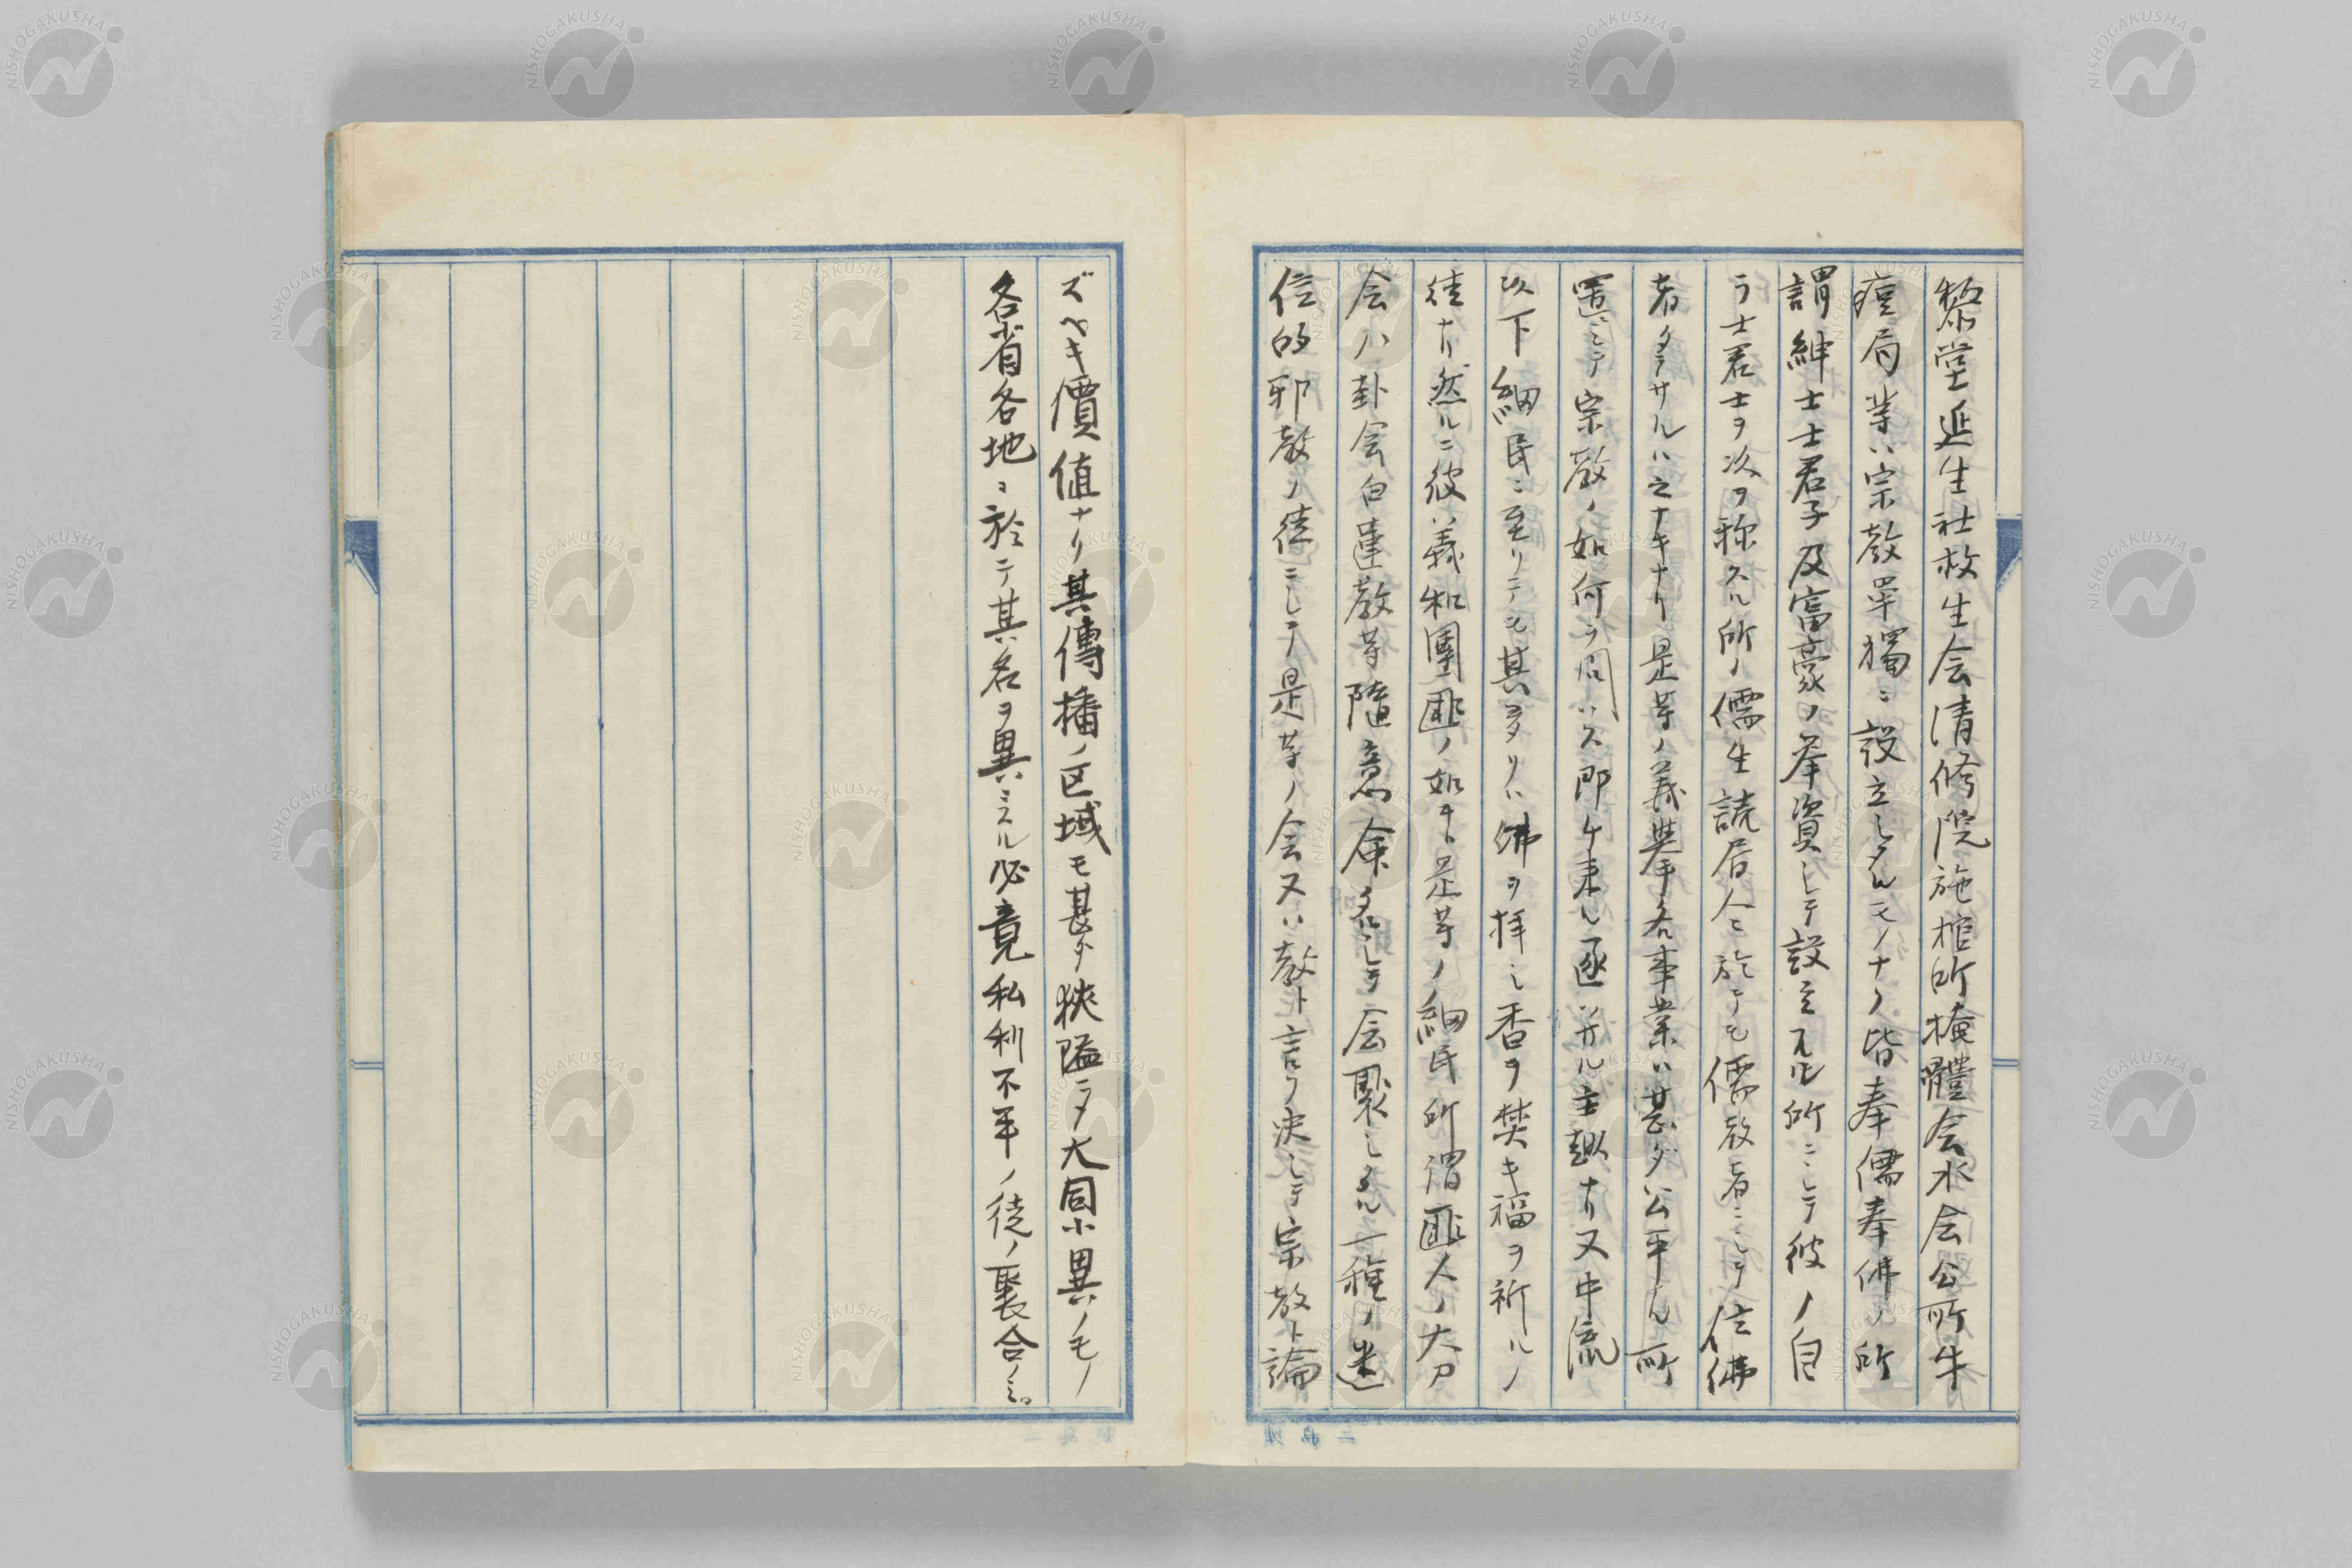 黎堂延生社救生会清修院施棺所掩體会水会公所牛
痘局業ハ宗教罕獨ニ設立シタルモノナク皆奉儒奉佛ノ所
謂紳士士君子及富豪ノ挙資シテ設立スル所ニシテ彼ノ自
ラ士君士ヲ次ヲ称スル所ノ儒生読居人ニ於テモ儒教者ニシテ信佛
者タラサルハ之ナキナリ是等ノ義挙各事業ハ甚ダ公平ん所
置ニシテ宗教ノ如何ヲ問ハス即ケ来ル逐ハサル主趣ナリ又中流
以下細民ニ至リテモ其多リハ佛ヲ拝シ香ヲ焚キ福ヲ祈ルノ
徒ナリ然ルニ彼義和團匪ノ如キ是等ノ細民所謂匪人ノ大刀
会八卦会白蓮教等随意命名シテ会聚シタル一種ノ迷
信的邪教ノ徒ニシテ是等ノ会又ハ教ト言フ决シテ宗教ト論
ズベキ價値ナリ其傳播ノ区域モ甚ダ狹隘ラタ大同小異ノモノ
各省各地ニ於テ其名ヲ異ニスル必竟私利不平ノ徒ノ聚合ノミ。
NISHOGAKUSHA